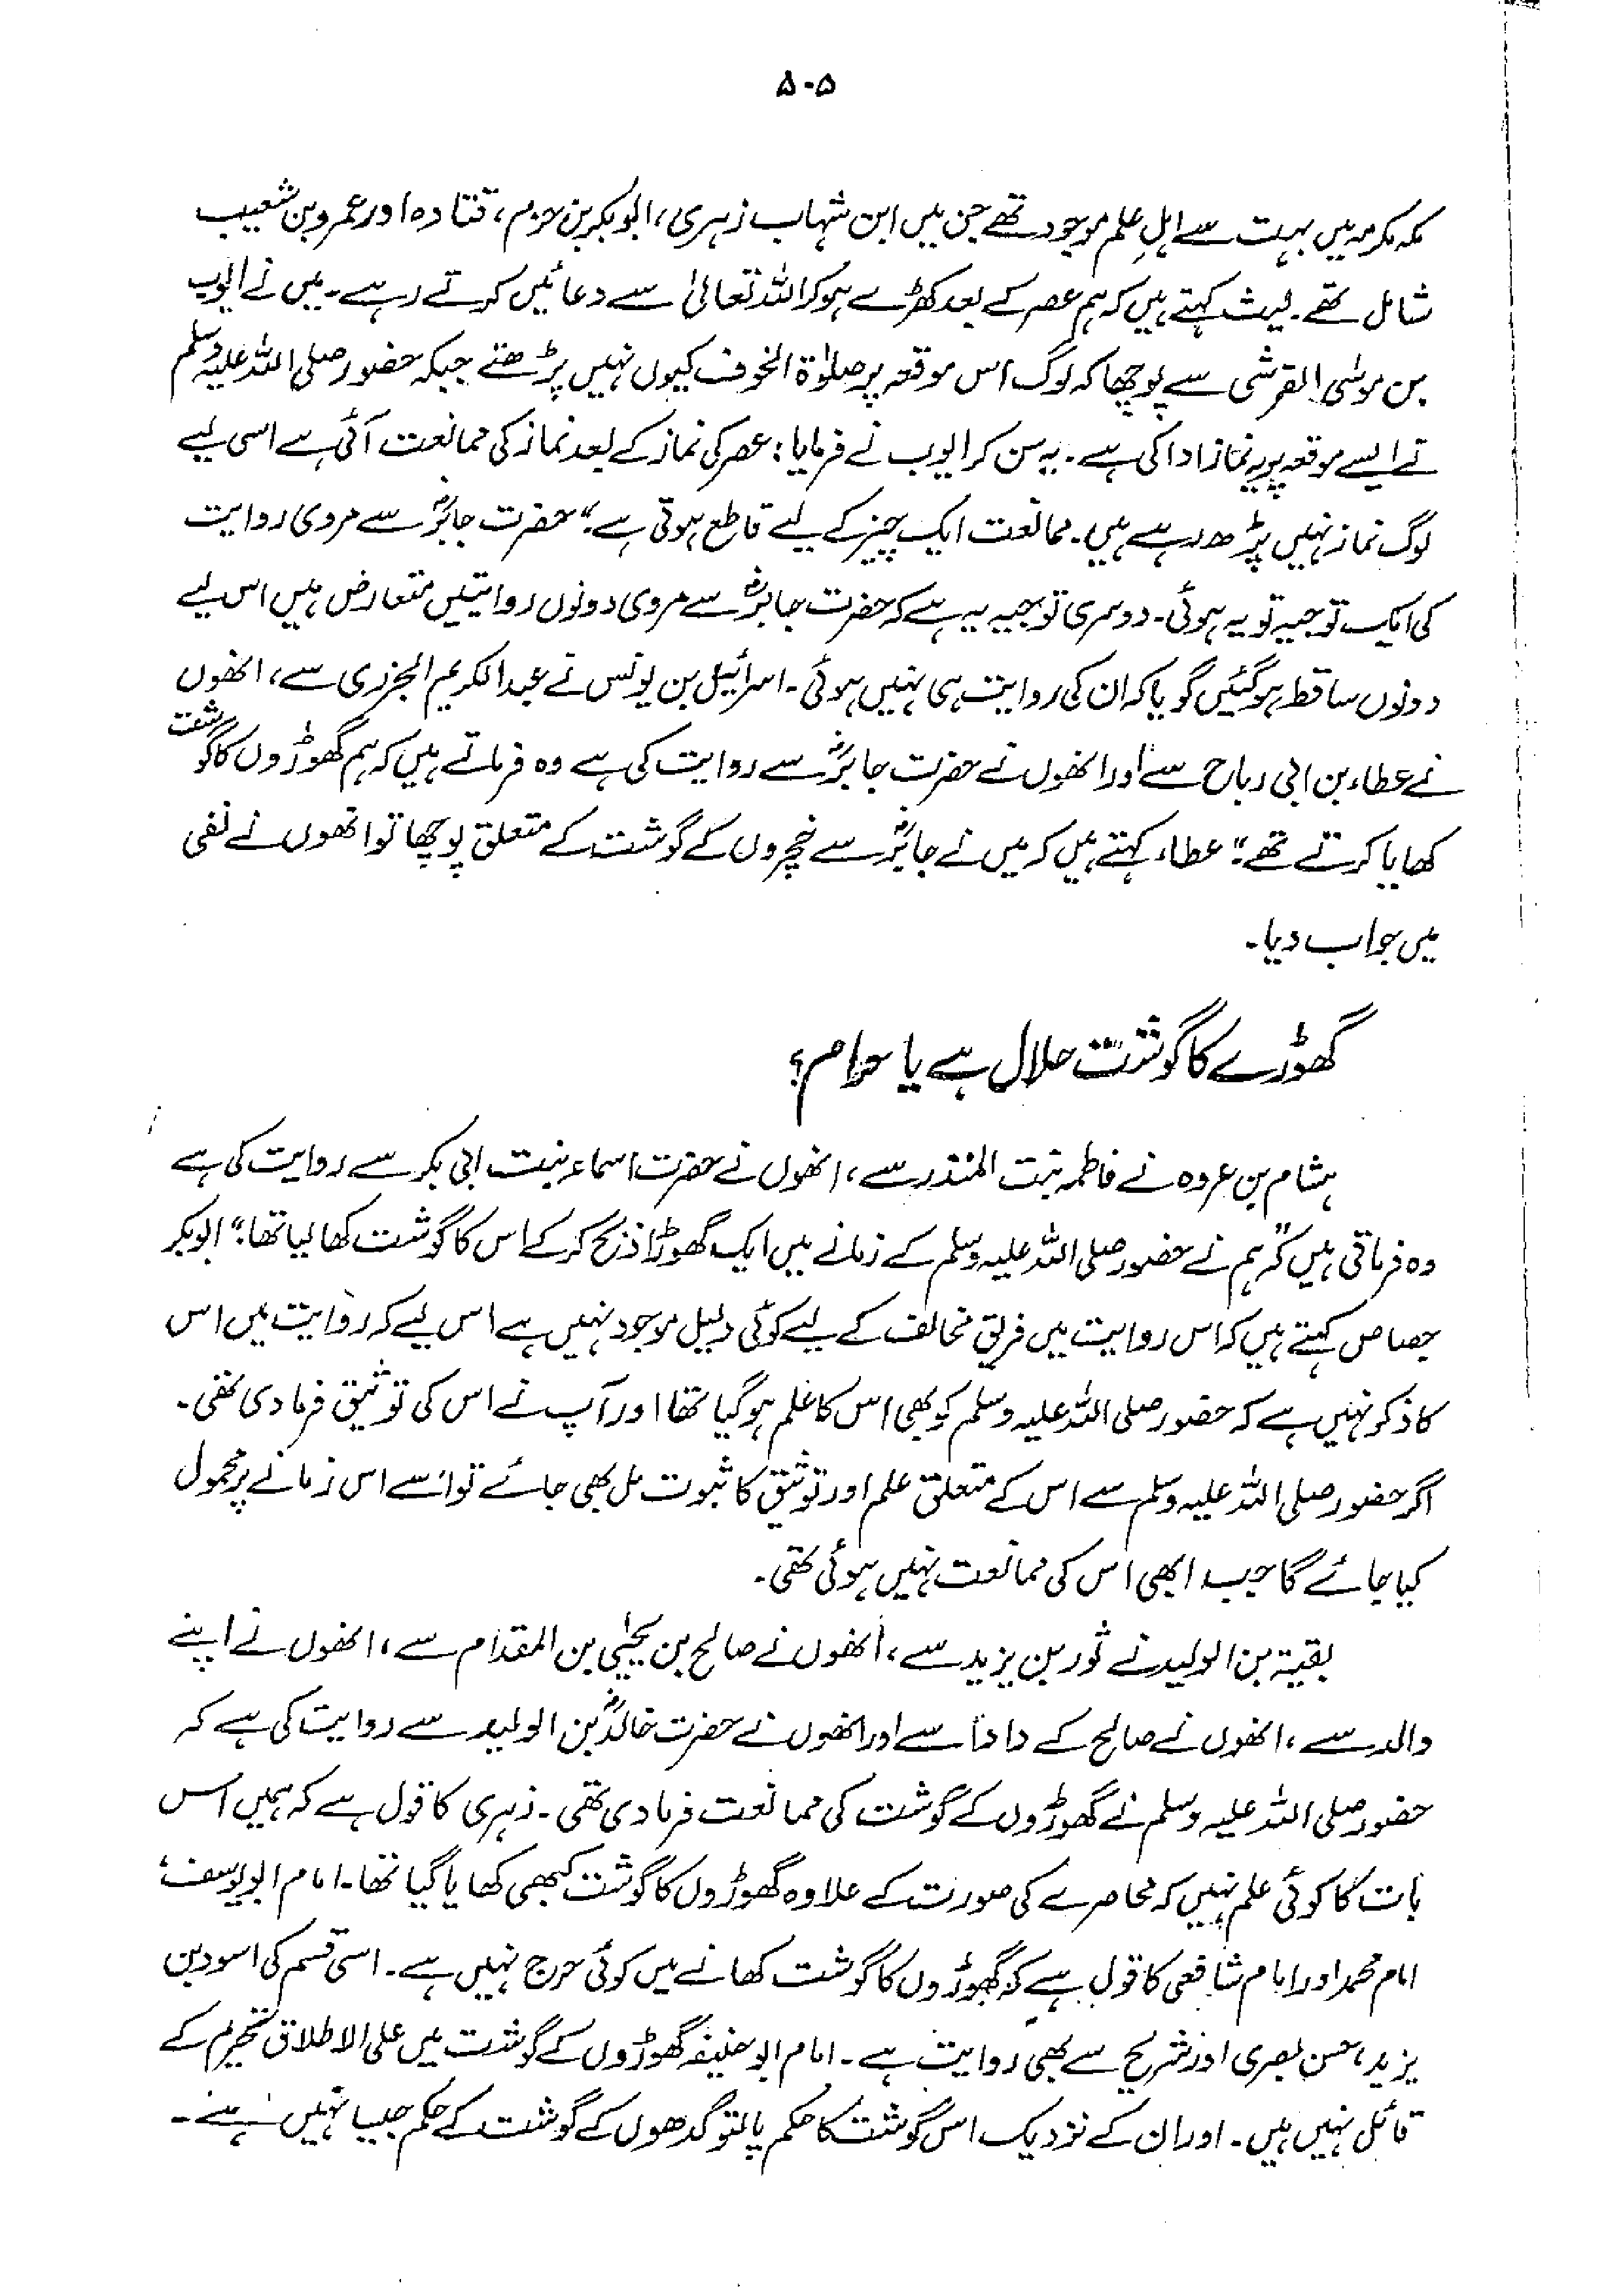 ۵۰۵
مکہ مکرمہ میں بہت سے اہلِ علم موجود تھے جن میں ابن شہاب زہری، ابوبکر بن حزم، قتادہ اور عمرو بن شعیب
شامل تھے۔ لیث کہتے ہیں کہ ہم عصر کے بعد کھڑے ہو کر اللہ تعالیٰ سے دعائیں کرتے رہے۔ میں نے ایوب
بن موسٰی القرشی سے پوچھا کہ لوگ اس موقعہ پر صلوٰۃ الخوف کیوں نہیں پڑھتے جبکہ حضور صلی اللہ علیہ وسلم
نے ایسے موقعہ پر یہ نماز ادا کی ہے۔ یہ سن کر ایوب نے فرمایا: عصر کی نماز کے بعد نماز کی ممانعت آئی ہے اسی لیے
لوگ نماز نہیں پڑھ رہے ہیں۔ ممانعت ایک چیز کے لیے قاطع ہوتی ہے“ حضرت جابرؓ سے مروی روایت
کی ایک توجیہ تو یہ ہوئی۔ دوسری توجیہ یہ ہے کہ حضرت جابرؓ سے مروی دونوں روایتیں متعارض ہیں اس لیے
دونوں ساقط ہو گئیں گویا کہ ان کی روایت ہی نہیں ہوئی۔ اسرائیل بن یونس نے عبدالکریم الجزری سے، انھوں
نے عطاء بن ابی رباح سے اور انھوں نے حضرت جابرؓ سے روایت کی ہے وہ فرماتے ہیں کہ ہم گھوڑوں کا گوشت
کھایا کرتے تھے“ عطاء کہتے ہیں کہ میں نے جابرؓ سے خچروں کے گوشت کے متعلق پوچھا تو انھوں نے نفی
میں جواب دیا۔
گھوڑے کا گوشت حلال ہے یا حرام؟
ہشام بن عروہ نے فاطمہ بنت المنذر سے، انھوں نے حضرت اسماء بنت ابی بکر سے روایت کی ہے
وہ فرماتی ہیں کہ ”ہم نے حضور صلی اللہ علیہ وسلم کے زمانے میں ایک گھوڑا ذبح کر کے اس کا گوشت کھا لیا تھا“ ابوبکر
جصاص کہتے ہیں کہ اس روایت میں فریق مخالف کے لیے کوئی دلیل موجود نہیں ہے اس لیے کہ روایت میں اس
کا ذکر نہیں ہے کہ حضور صلی اللہ علیہ وسلم کو بھی اس کا علم ہو گیا تھا اور آپ نے اس کی توثیق فرما دی تھی۔
اگر حضور صلی اللہ علیہ وسلم سے اس کے متعلق علم اور توثیق کا ثبوت مل بھی جائے تو اسے اس زمانے پر محمول
کیا جائے گا جب ابھی اس کی ممانعت نہیں ہوئی تھی۔
بقیۃ بن الولید نے ثور بن یزید سے، انھوں نے صالح بن یحیٰی بن المقدام سے، انھوں نے اپنے
والد سے، انھوں نے صالح کے دادا سے اور انھوں نے حضرت خالدؓ بن الولید سے روایت کی ہے کہ
حضور صلی اللہ علیہ وسلم نے گھوڑوں کے گوشت کی ممانعت فرما دی تھی۔ زہری کا قول ہے کہ ہمیں اس
بات کا کوئی علم نہیں کہ محاصرے کی صورت کے علاوہ گھوڑوں کا گوشت کبھی کھایا گیا تھا۔ امام ابویوسف،
امام محمد اور امام شافعی کا قول ہے کہ گھوڑوں کا گوشت کھانے میں کوئی حرج نہیں ہے۔ اسی قسم کی اسود بن
یزید، حسن بصری اور شریح سے بھی روایت ہے۔ امام ابوحنیفہ گھوڑوں کے گوشت میں علی الاطلاق تحریم کے
قائل نہیں ہیں۔ اور ان کے نزدیک اس گوشت کا حکم پالتو گدھوں کے گوشت کے حکم جیسا نہیں ہے۔